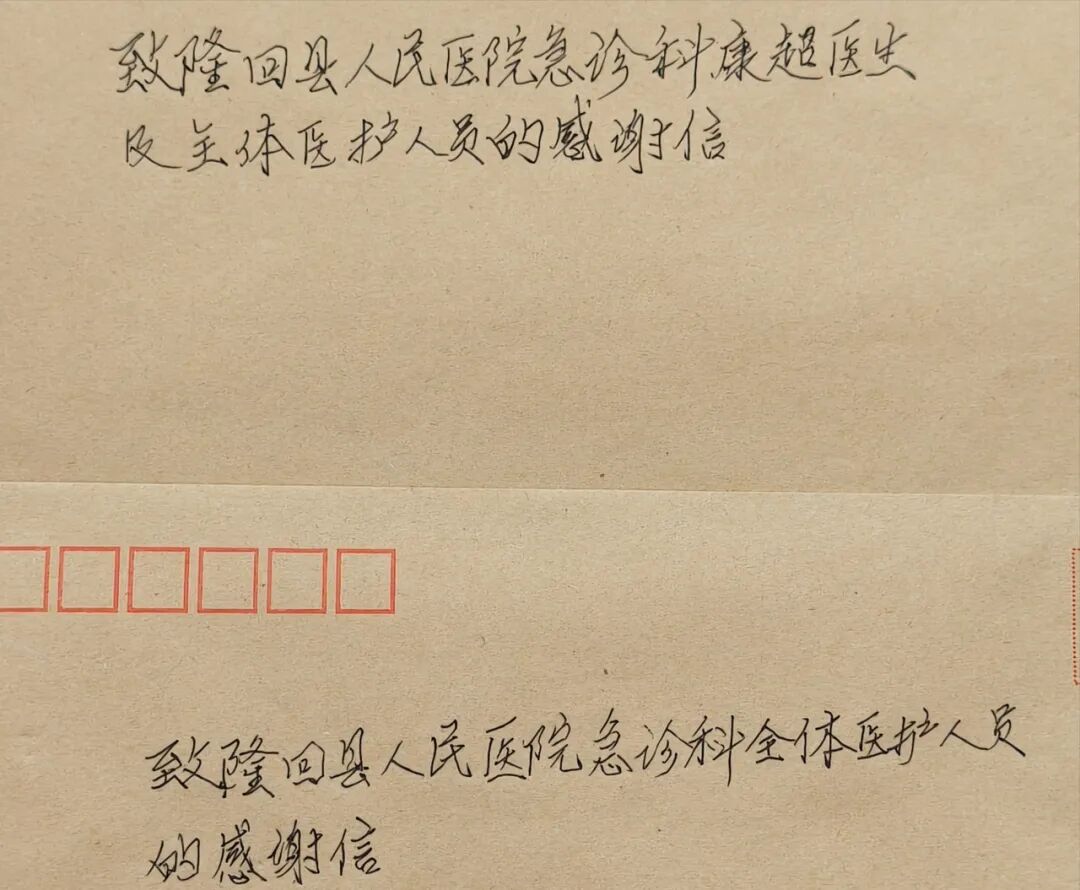 致隆回县人民医院急诊科康超医生
及全体医护人员的感谢信
致隆回县人民医院急诊科全体医护人员
的感谢信